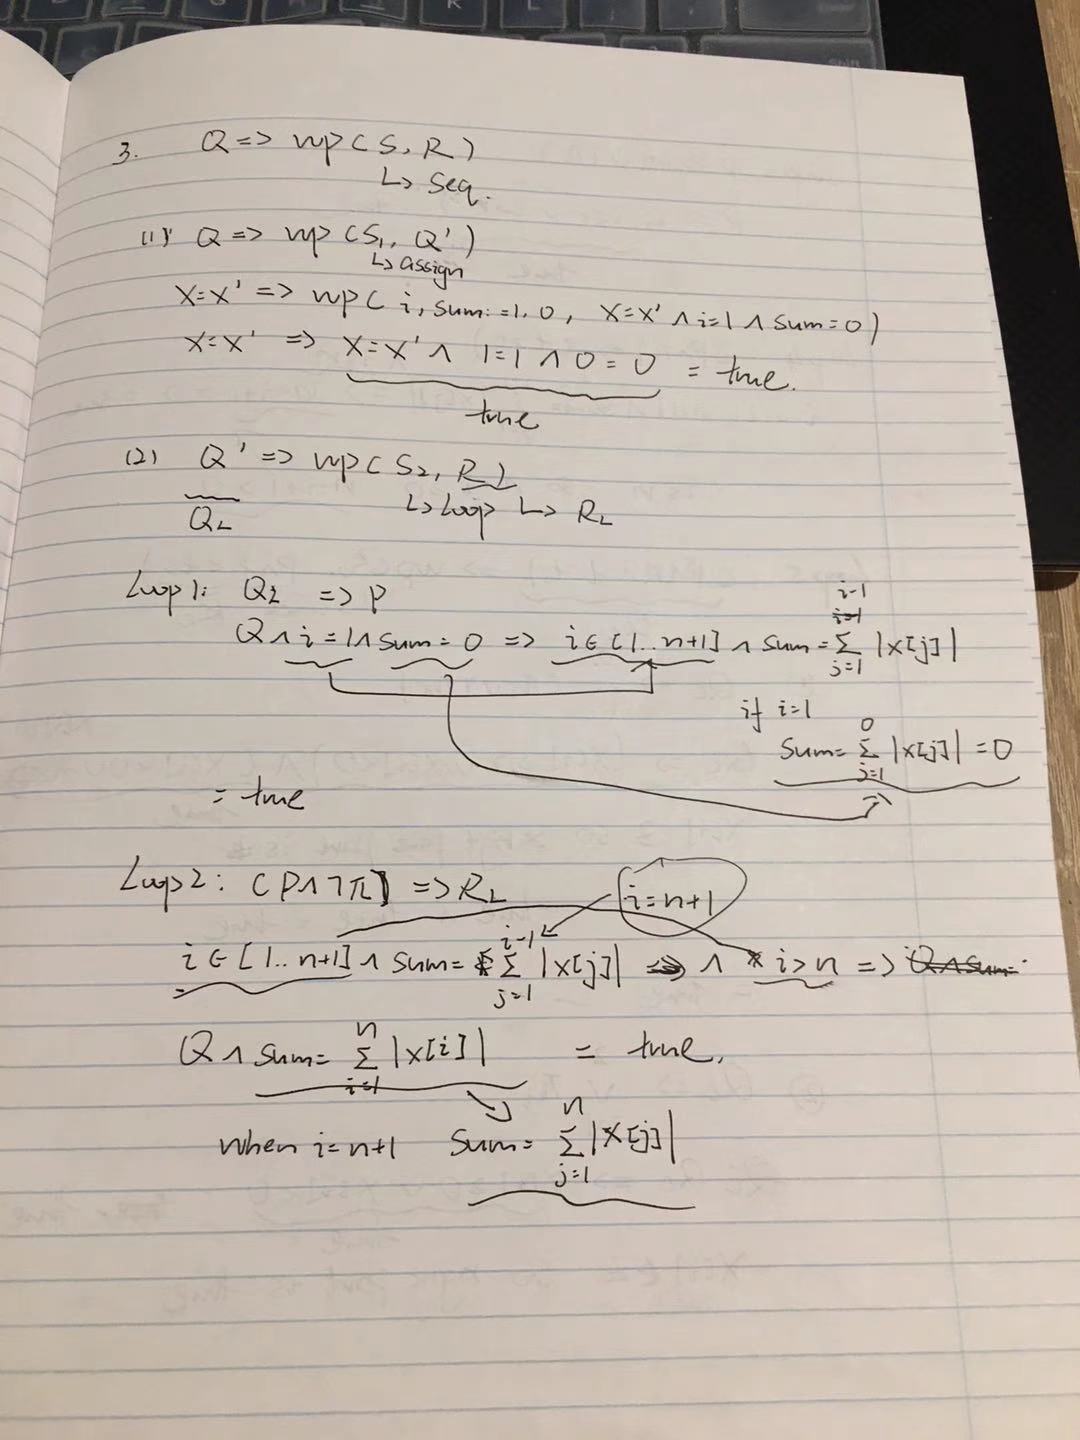 3. Q => wp(S, R)
↳ Seq.
(1) Q => wp(S₁, Q')
↳ assign
X=X' => wp(i, sum:=1,0, X=X' ∧ i=1 ∧ sum=0)
X=X' => X=X' ∧ 1=1 ∧ 0=0 = true.
true
(2) Q' => wp(S₂, R)
Q_L ↳ Loop ↳ R_L
Loop1: Q_L => P
Q ∧ i=1 ∧ sum=0 => i∈[1..n+1] ∧ sum=∑_{j=1}^{i-1} |x[j]|
if i=1
sum=∑_{j=1}^{0} |x[j]| =0
= true
Loop2: (P∧¬π) => R_L i=n+1
i∈[1..n+1] ∧ sum=∑_{j=1}^{i-1} |x[j]| ∧ i>n => Q∧sum=
Q ∧ sum= ∑_{i=1}^{n} |x[i]| = true.
when i=n+1 sum= ∑_{j=1}^{n} |x[j]|